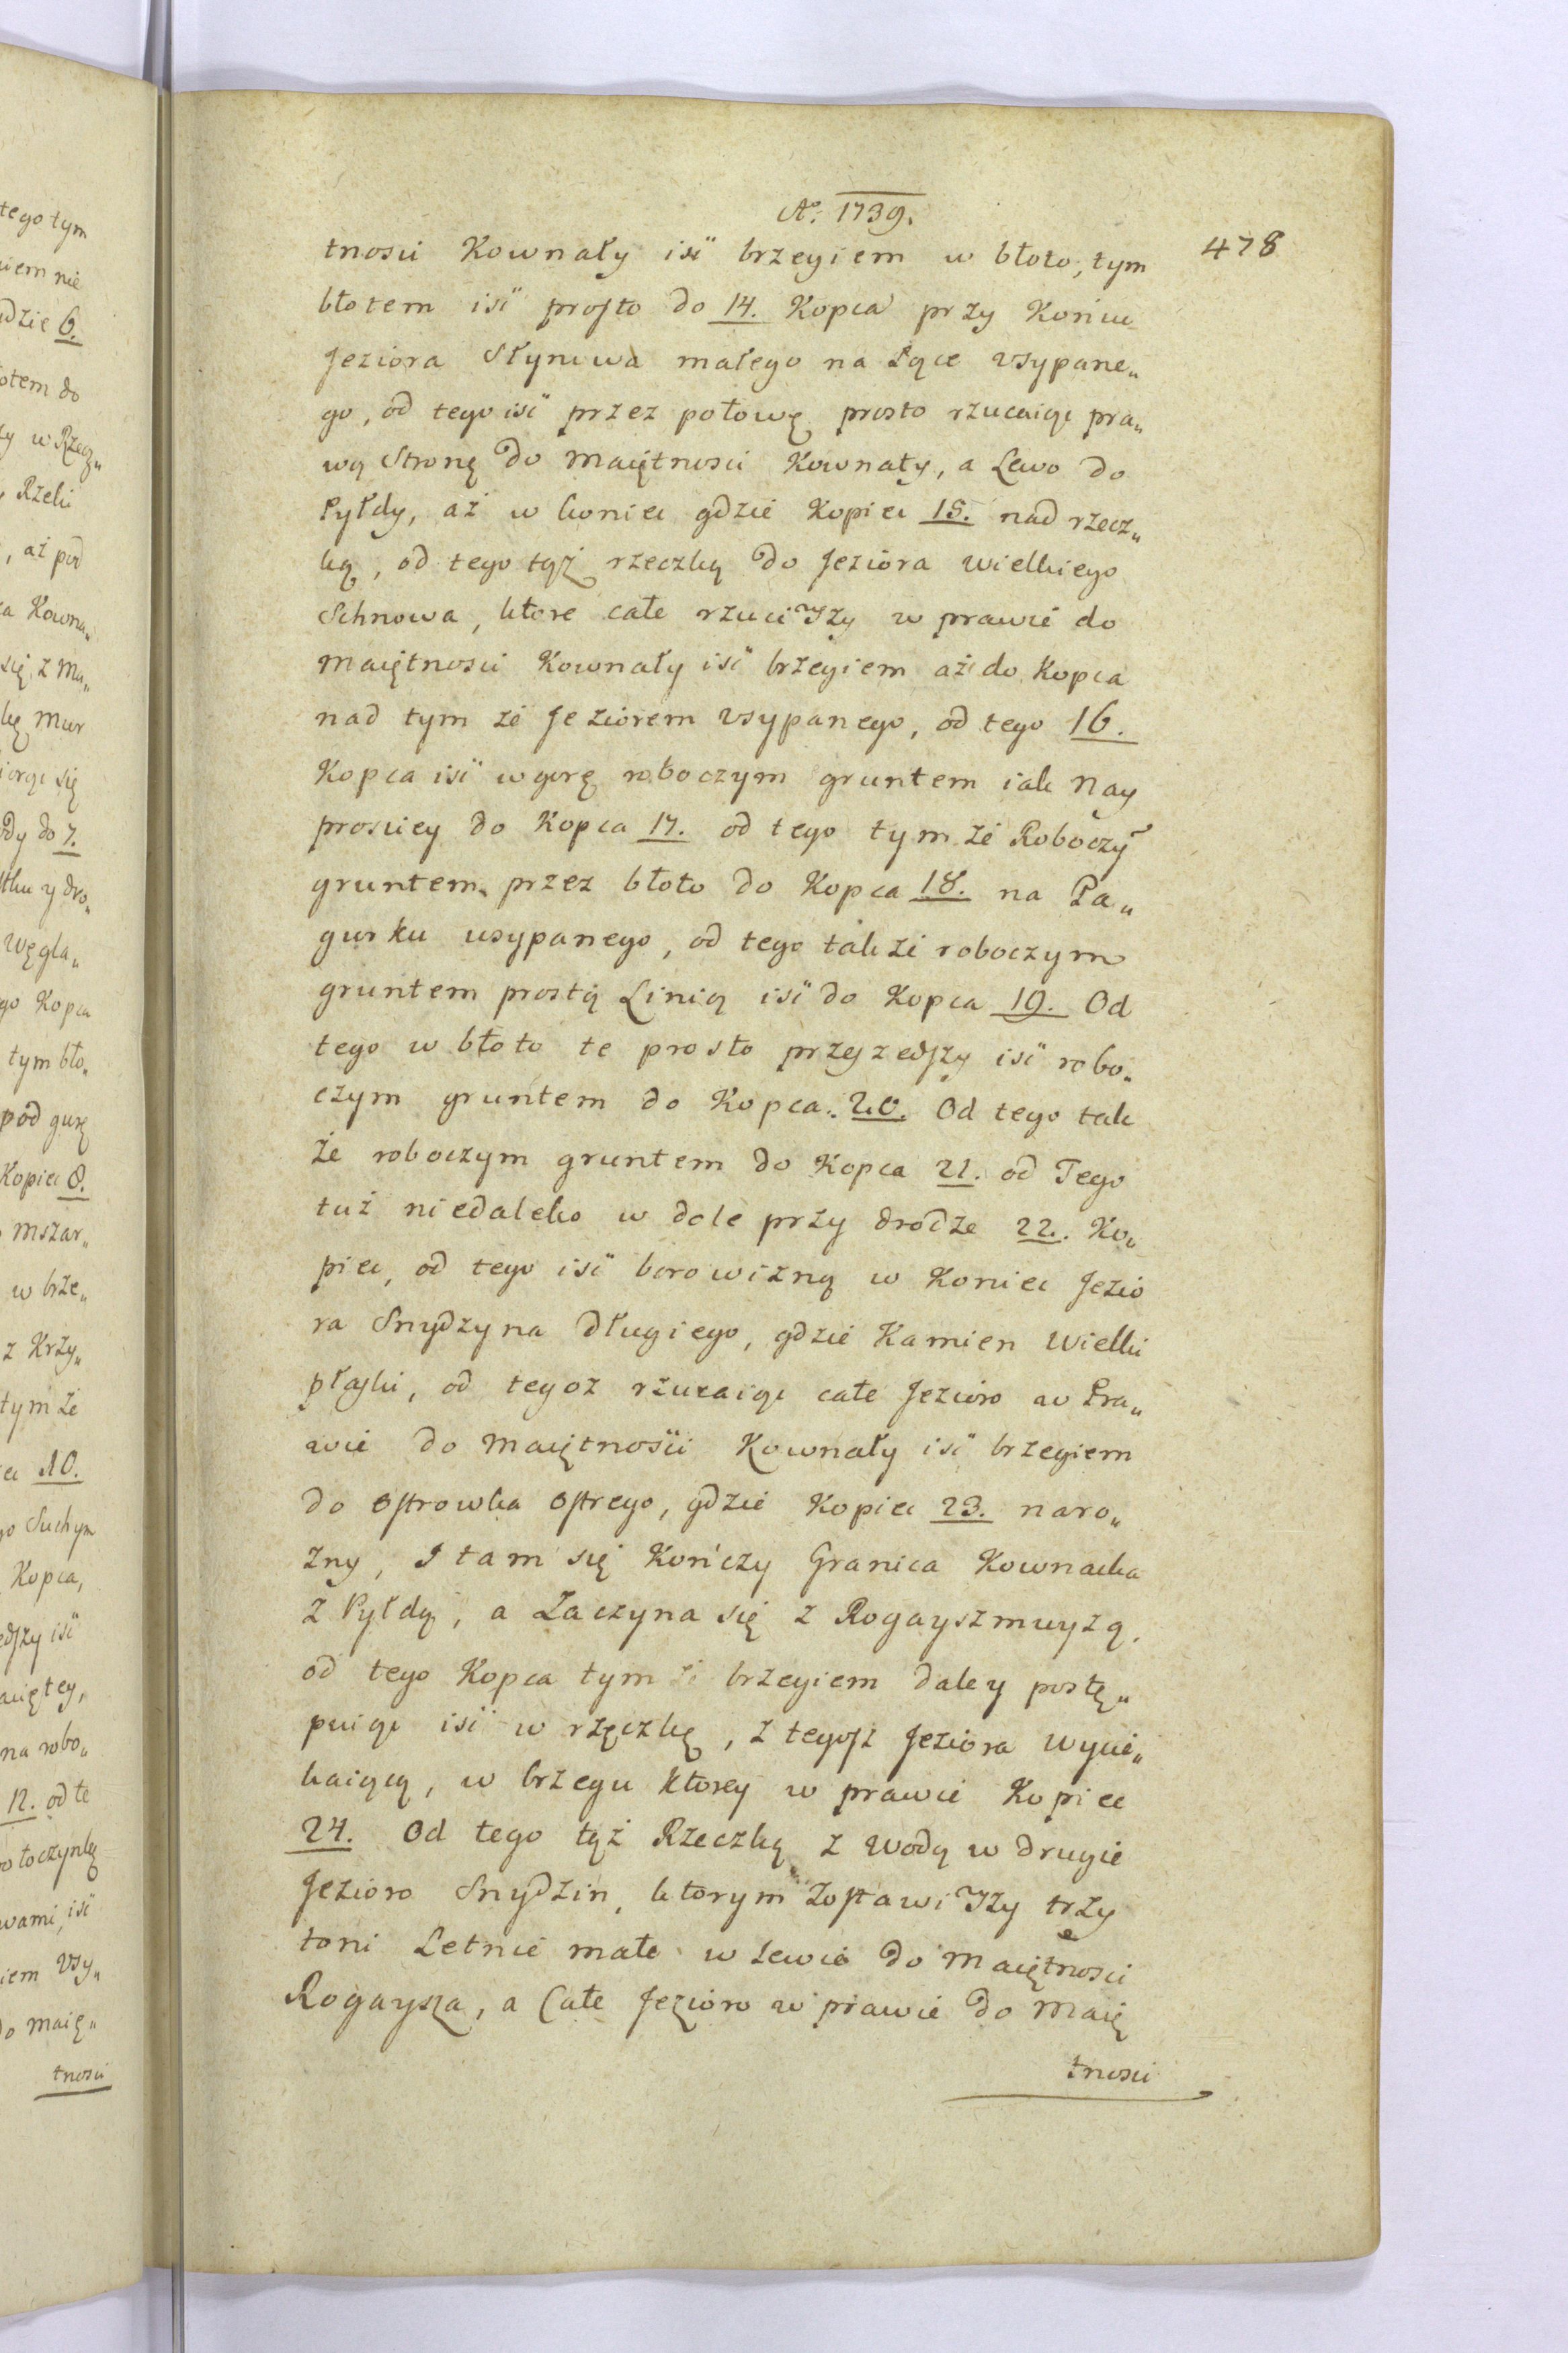 tego tym
iem nie
dzie 6.
otem do
y w Rzecz„
Rzeki
, aż pod
a Kowna„
się, z Ma„
kę Mur
iorąc się
ody do 7.
tku y dro„
Węgla„
go Kopca
tym bło„
pod gurę
Kopiec 8.
mszar„
w brze„
z Krzy„
tym że
10.
go Suchym
Kopca,
edszy iść
na robo„
12. od te
wami, iść
iem Vsy„
do maię„
tnosci
Aº: 1739.
478
tnosci Kownały iść brzegiem w błoto, tym
błotem iść prosto do 14. Kopca przy Końcu
Jeziora Słyniwa małego na Łące vsypane„
go, od tego iść przez połowę prosto rzucaiąc pra„
wą Stronę do Maiętnosci Kownały, a Lewo do
Pyłdy, aż w koniec gdzie Kopiec 15. nad rzecz„
ką, od tego tąż rzeczką do Jeziora wielkiego
Schnowa, ktore całe rzuciwszy w prawie do
Maiętnosci Kownały iść brzegiem aż do Kopca
nad tym że Jeziorem vsypanego, od tego 16.
Kopca iść w gorę roboczym gruntem iak Nay
prosciey do Kopca 17. od tego tym że Roboczym̃
gruntem przez błoto do Kopca 18. na Pa„
gurku usypanego, od tego także roboczym
gruntem prostą Linią iść do Kopca 19. Od
tego w błoto te prosto przeszedszy iść robo„
czym gruntem do Kopca 20. Od tego tak
że roboczym gruntem do Kopca 21. od Tego
tuż niedaleko w dole przy drodze 22. Ko„
piec, od tego iść borowizną w Koniec Jezio
ra Snydzyna Długiego, gdzie Kamien Wielki
płaski, od tegoż rzucaiąc całe Jezioro w Pra„
wie do Maiętnosci Kownały iść brzegiem
do Ostrowka Ostrego, gdzie Kopiec 23. naro„
żny, I tam się Kończy Granica Kownacka
z Pyłdą, a Zaczyna się z Rogayszmuyżą.
od tego Kopca tym że brzegiem daley postę„
puiąc iść w rzęczkę, z tegosz Jeziora wycie„
kaiącą, w brzegu ktorey w prawie Kopiec
24. Od tego tąż Rzeczką z wodą w drugie
Jezioro Snydzin, ktorym zostawiwszy trzy
toni Letnie małe w Lewie do Maiętnosci
Rogaysza, a Całe Jezioro w prawie do Maię
tnosci